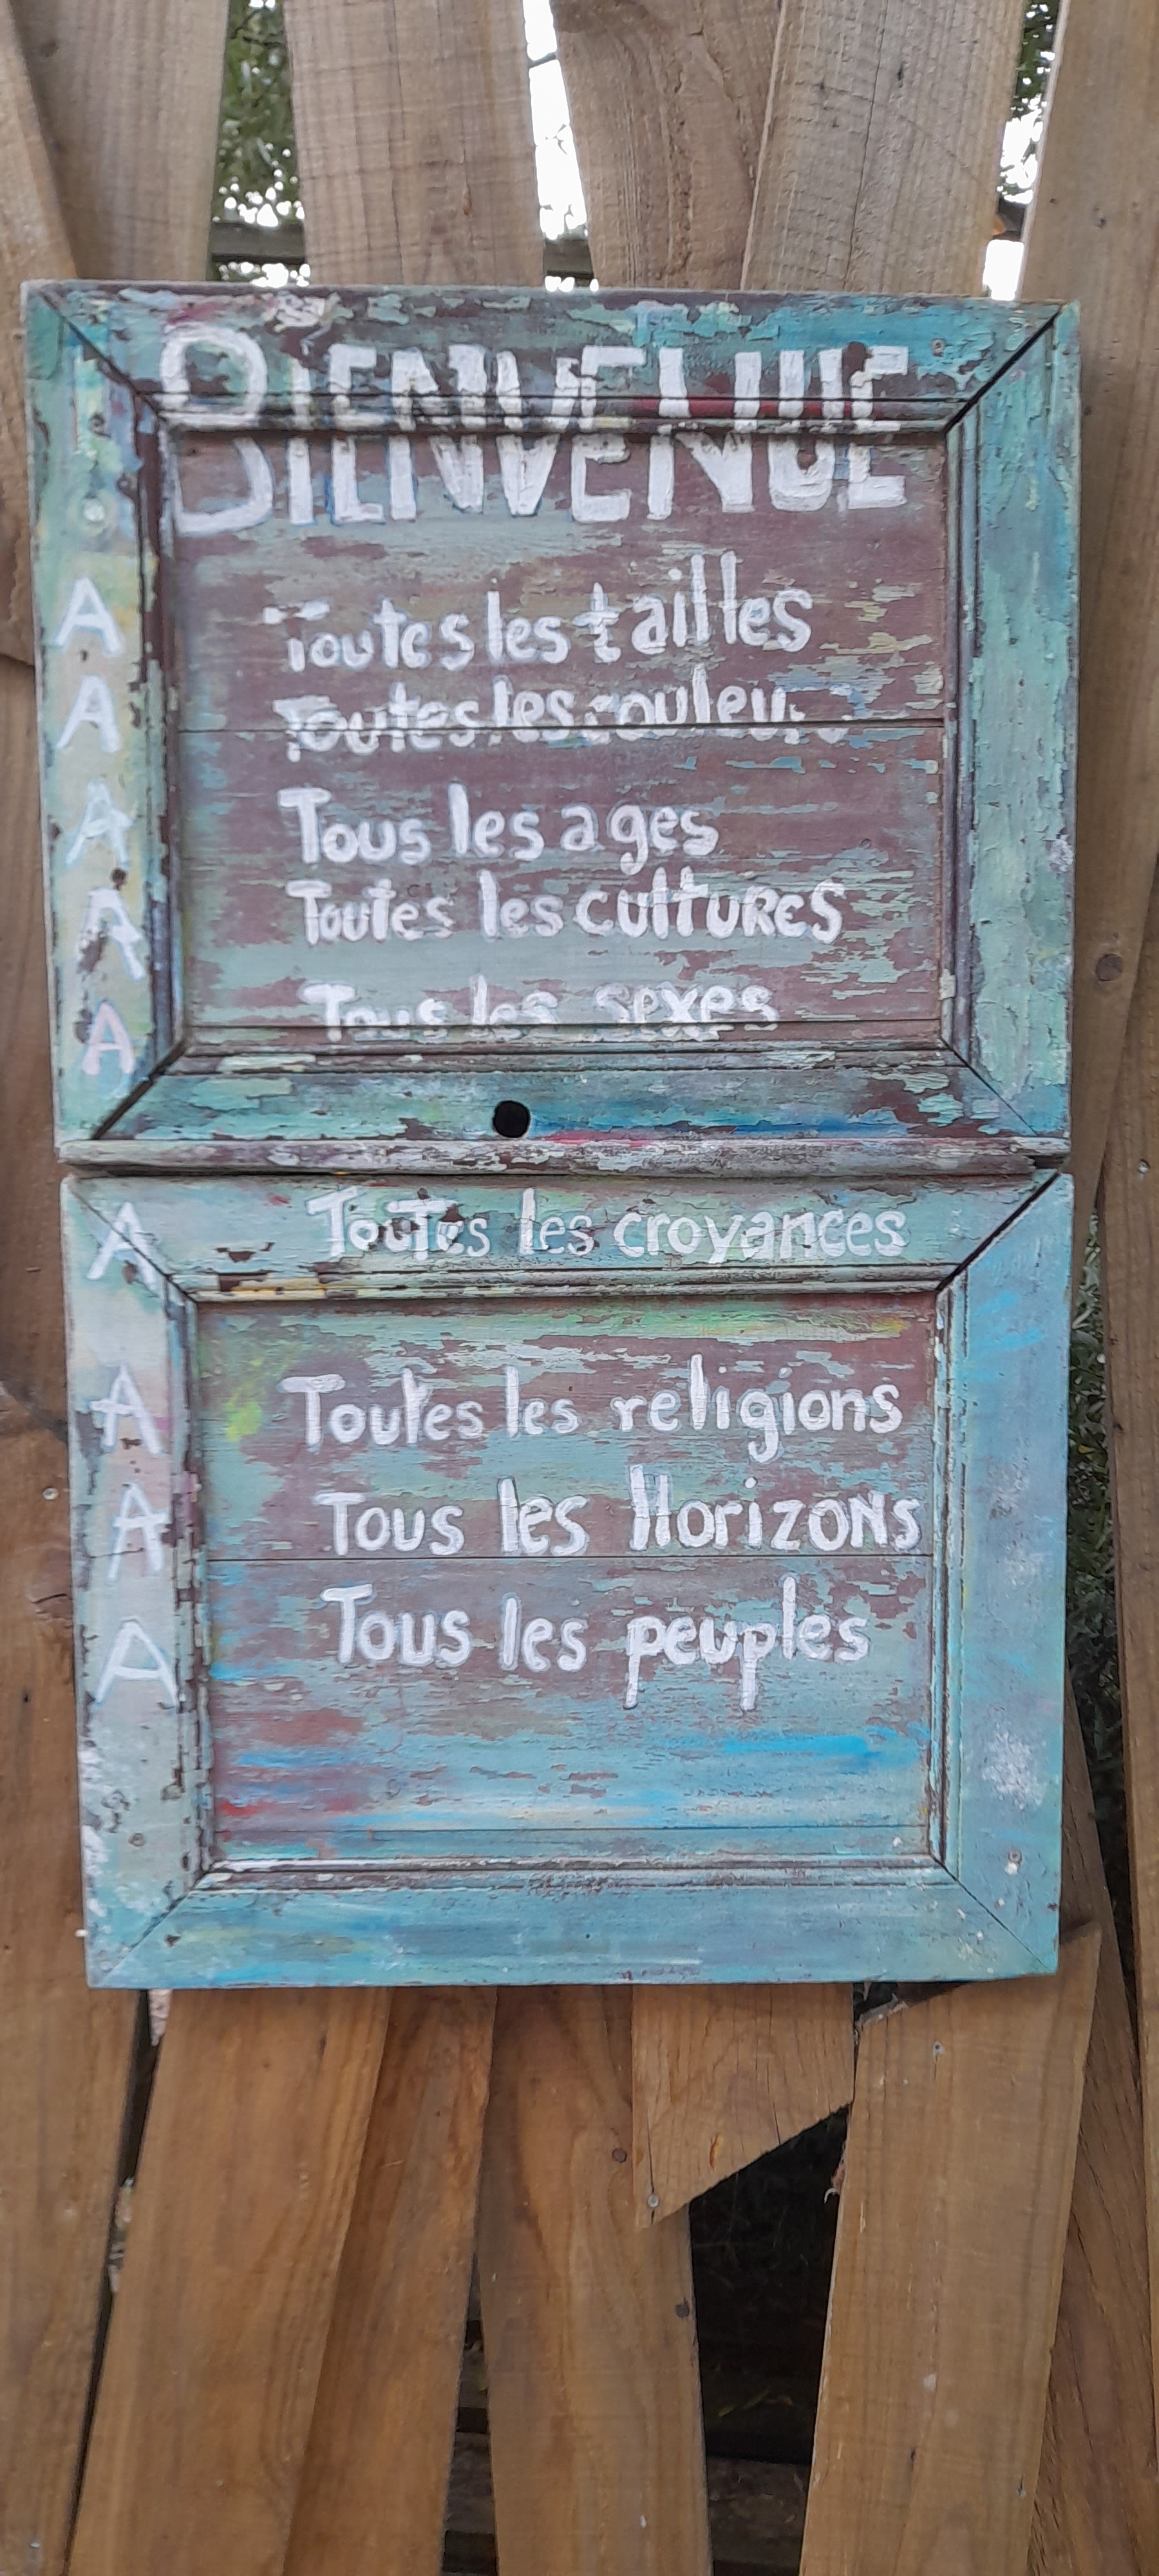 BIENVENUE
A Toutes les tailles
A Toutes les couleurs
A Tous les ages
A Toutes les cultures
A Tous les sexes
A Toutes les croyances
A Toutes les religions
A Tous les Horizons
A Tous les peuples